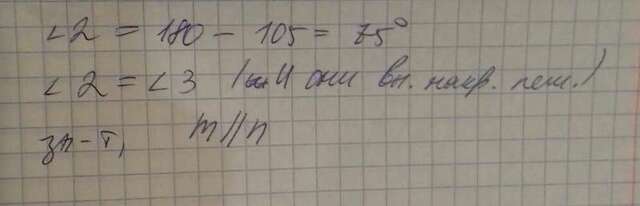 ∠2 = 180 - 105 = 75°
∠2 = ∠3 ( и они вн. накр. леж.)
зн-т, m||n